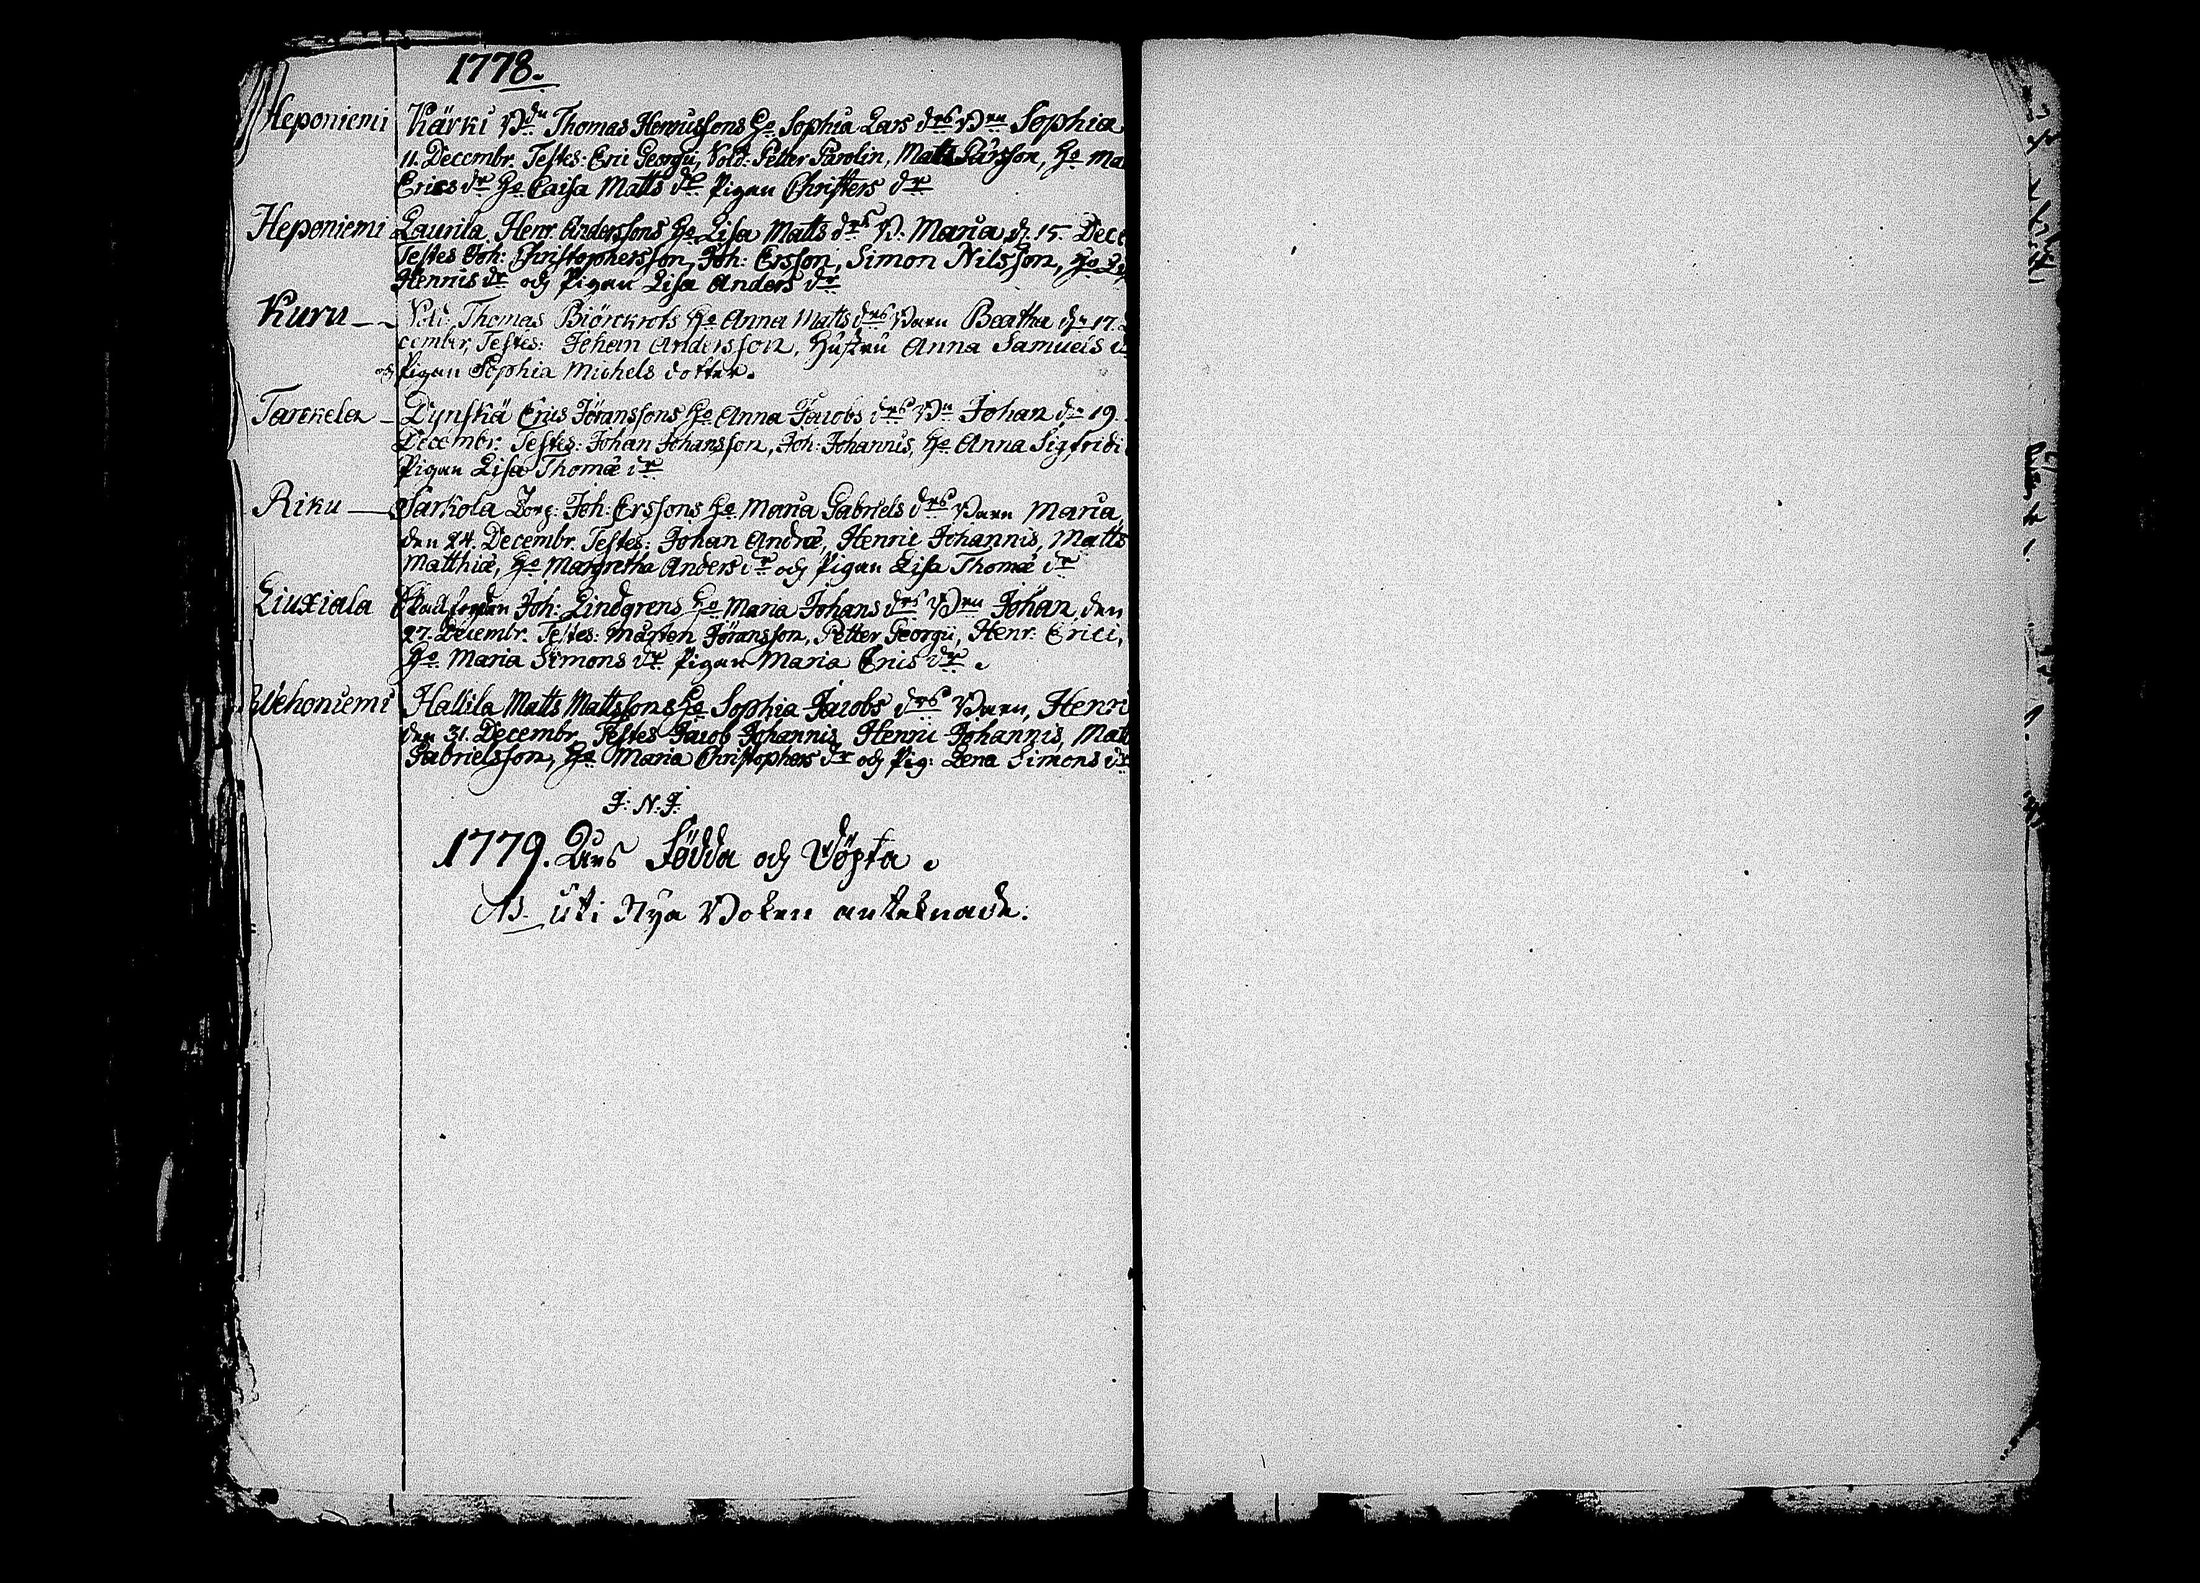 1778.
Heponiemi Kärki Bdn Thomas Henricssons Ho Sophia Lars drs Bn Sophia
11. Decembr. Testes: Eric Georgii, Sold: Petter Parolin, Matts Larsson, Ho Ma
Erics dr Ho Caisa Matts dr Pigan Christers dr
Heponiemi Laurila Henr. Anderssons Ho Lisa Matts drs B. Maria d. 15. Dece
Testes Joh: Christophersson, Joh: Ersson, Simon Nilsson, Ho
Henrics dr och Pigan Lisa Anders dr
Kuru Sold: Thomas Biörckrots Ho Anna Matts drs Barn Beatha dn 17.
cembr, Testes: Johan Andersson, Hustru Anna Samuels d
och Pigan Sophia Michels dotter.
Tarckela Dynskä Erics Jöranssons Ho Anna Jacobs drs Bn Johan dn 19.
Decembr. Testes: Johan Johansson, Joh: Johannis, Ho Anna Sigfridi
Pigan Lisa Thomæ dr
Riku Sarkola Torp: Joh: Erssons Ho Maria Gabriels drs Barn Maria
den 24. Decembr. Testes: Johan Andræ, Henric Johannis, Matts
Matthiæ, Ho Margretha Anders dr och Pigan Lisa Thomæ dr
Liuxiala Stallfogden Joh: Lindgrens Ho Maria Johans drs Bn Johan den
27. Decembr. Testes: Mårten Jöransson, Petter Georgii, Henr: Erici,
Ho Maria Simons dr Pigan Maria Erics dr.
Wehoniemi Hallila Matts Mattssons Ho Sophia Jacobs drs Barn, Henri
den 31. Decembr. Testes Jacob Johannis, Henric Johannis, Mat
Gabrielsson, Ho Maria Christophers dr och Pig: Lena Simons dr
J. N. J.
1779. Års Födda och Döpta.
NB. uti Nya Boken anteknade.